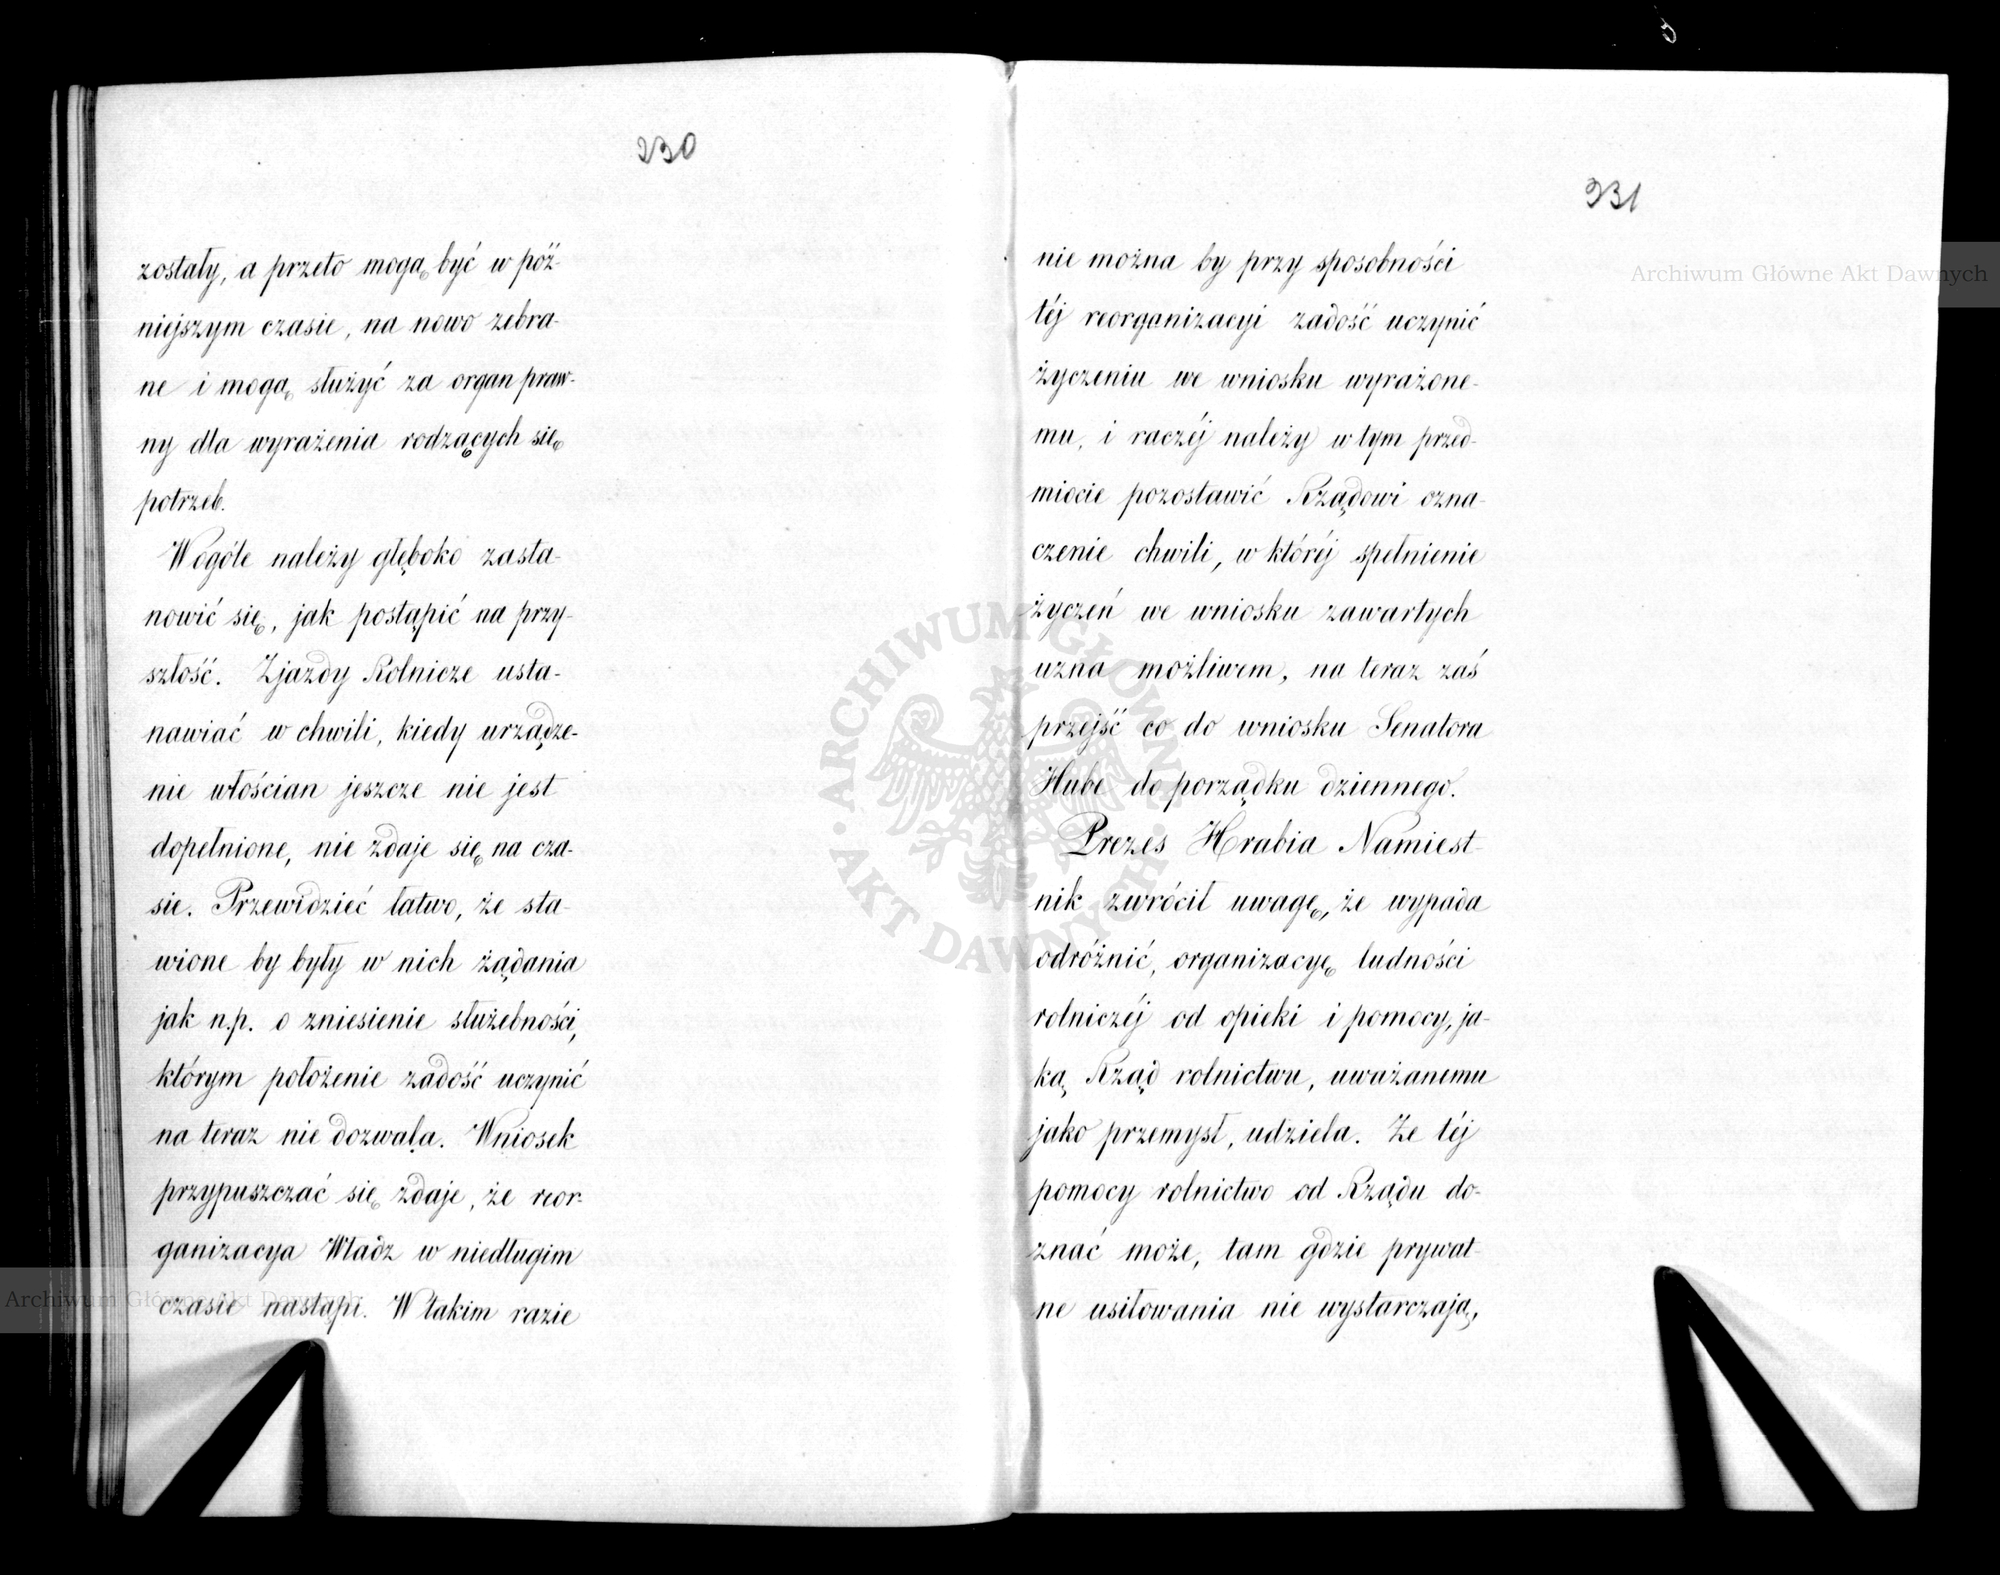 230
zostały, a przeto mogą być w póź-
niejszym czasie, na nowo zebra-
ne i mogą służyć za organ praw-
ny dla wyrażenia rodzących się
potrzeb.
Wogóle należy głęboko zasta-
nowić się, jak postąpić na przy-
szłość. Zjazdy Rolnicze usta-
nawiać w chwili, kiedy urządze-
nie włościan jeszcze nie jest
dopełnione, nie zdaje się na cza-
sie. Przewidzieć łatwo, że sta-
wione by były w nich żądania
jak n.p. o zniesienie służebności,
którym położenie zadość uczynić
na teraz nie dozwala. Wniosek
przypuszczać się zdaje, że reor-
ganizacya Władz w niedługim
czasie nastąpi. W takim razie
231
nie można by przy sposobności
téj reorganizacyi zadość uczynić
życzeniu we wniosku wyrażone-
mu, i raczéj należy w tym przed-
miocie pozostawić Rządowi ozna-
czenie chwili, w któréj spełnienie
życzeń we wniosku zawartych
uzna możliwem, na teraz zaś
przejść co do wniosku Senatora
Hube do porządku dziennego.
Prezes Hrabia Namiest-
nik zwrócił uwagę, że wypada
odróżnić, organizacyę ludności
rolniczéj od opieki i pomocy, ja-
ką Rząd rolnictwu, uważanemu
jako przemysł, udziela. Że téj
pomocy rolnictwo od Rządu do-
znać może, tam gdzie prywat-
ne usiłowania nie wystarczają,
Archiwum Główne Akt Dawnych
Archiwum Główne Akt Dawnych
ARCHIWUM GŁÓWNE · AKT DAWNYCH ·